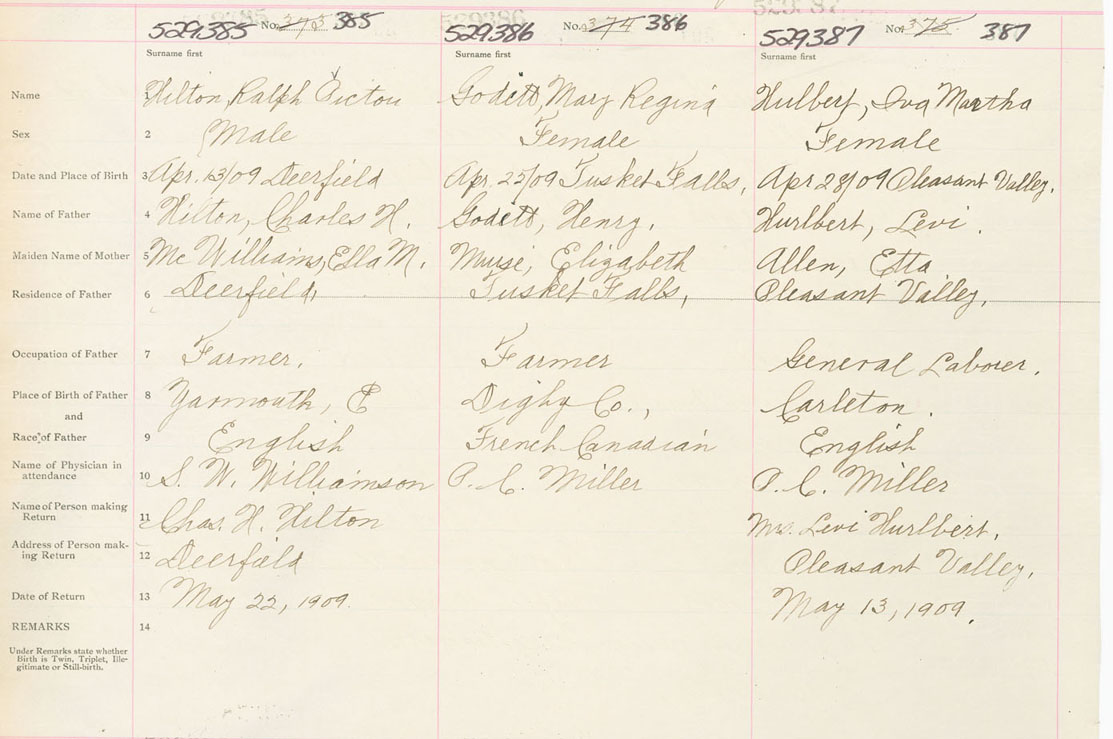 529385 No. 373 385 529386 No. 374 386 529387 No. 375 387
Surname first Surname first Surname first
Name 1 Hilton, Ralph Victou Godett, Mary Regina Hulbert, Iva Martha
Sex 2 Male Female Female
Date and Place of Birth 3 Apr. 13/09 Deerfield Apr. 25/09 Tusket Falls, Apr 28/09 Pleasant Valley.
Name of Father 4 Hilton, Charles H. Godett, Henry. Hurlbert, Levi.
Maiden Name of Mother 5 McWilliams, Ella M. Muise, Elizabeth Allen, Etta
Residence of Father 6 Deerfield, Tusket Falls, Pleasant Valley,
Occupation of Father 7 Farmer. Farmer General Laborer.
Place of Birth of Father 8 Yarmouth, Digby Co., Carleton.
and
Race of Father 9 English French Canadian English
Name of Physician in
attendance 10 S. W. Williamson P. C. Miller P. C. Miller
Name of Person making
Return 11 Chas. H. Hilton Mrs. Levi Hurlbert.
Address of Person mak-
ing Return 12 Deerfield Pleasant Valley,
Date of Return 13 May 22, 1909. May 13, 1909.
REMARKS 14
Under Remarks state whether
Birth is Twin, Triplet, Ille-
gitimate or Still-birth.